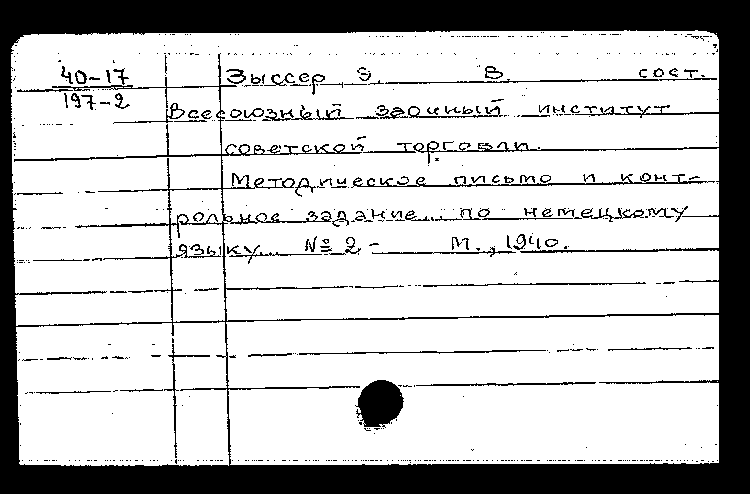 40-17
197-2
Зыссер, В. сост.
Всесоюзный заочный институт
советской торговли.
Методическое письмо и конт-
рольное задание... по немецкому
языку... № 2 - М., 1940.